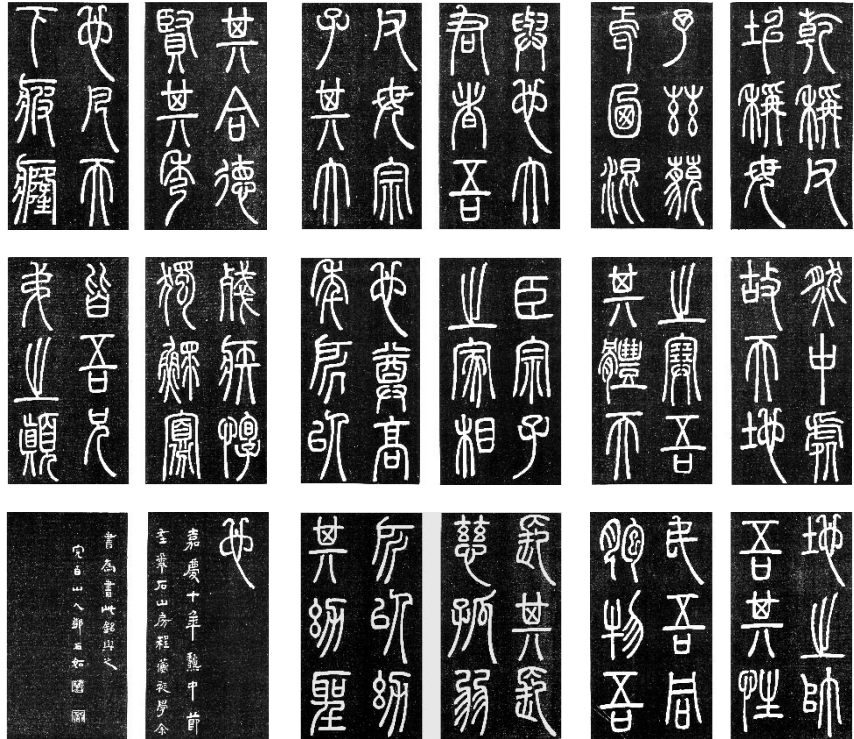 乾稱父
坤稱母
予茲藐
焉迺混
然中處
故天地
之塞吾
其體天
地之帥
吾其性
民吾同
胞物吾
與也大
君者吾
父母宗
子其大
臣宗子
之家相
也尊高
年所以
長其長
慈孤弱
所以幼
其幼聖
其合德
賢其秀
也凡天
下疲癃
殘疾惸
獨鰥寡
皆吾兄
弟之顛
也
嘉慶十年中節
石山房程蘅衫學余
書為書此銘與之
完白山人鄧石如